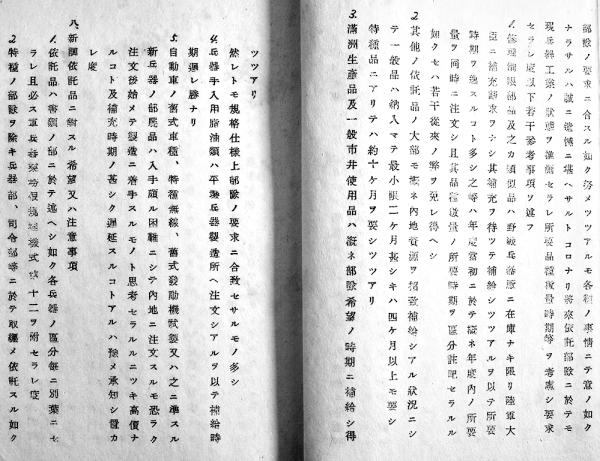 部隊ノ要求ニ合スル如ク努メツツアルモ各種ノ事情ニテ意ノ如ク
ナラサルハ誠ニ遺憾ニ堪ヘサルトコロナリ將來依託部隊ニ於テモ
現兵器工業ノ狀態ヲ セラレ所要品種數量時期等ヲ考慮シ要求
セラレ度以下若干參考事項ヲ述フ
1. 部品及之カ類似品ハ野戰兵器廠ニ在庫ナキ限リ陸軍大
臣ニ補充請求ヲナシ其補充ヲ待ツテ補給シツツアルヲ以テ所要
時期ヲ逸スルコト多シ之等ハ年度當初ニ於テ概ネ年度內ノ所要
量ヲ同時ニ注文シ且其品種數量ノ所要時期ヲ區分註記セラルル
如クセハ若干從來ノ弊ヲ免レ得ヘシ
2. 其他ノ依託品ノ大部ハ概ネ內地資源ヲ招致補給シアル狀況ニシ
テ一般品ハ納入マテ最小限二ケ月甚シキハ四ケ月以上モ要シ
特種品ニアリテハ約十ケ月ヲ要シツツアリ
3. 滿洲生產品及一般市井使用品ハ概ネ部隊希望ノ時期ニ補給シ得
ツツアリ
然レトモ規格仕樣上部隊ノ要求ニ合致セサルモノ多シ
4. 兵器手入用脂油類ハ平 兵器製造所ヘ注文シアルヲ以テ補給時
期遲レ勝ナリ
5. 自動車ノ舊式車種、特種無線、舊式發動機試製又ハ之ニ準スル
新兵器ノ部品ハ入手頗ル困難ニシテ內地ニ注文スルモ恐ラク
注文後始メテ製造ニ着手スルモノト思考セラルルニツキ高價ナ
ルコト及補充時期ノ甚シク遲延スルコトアルハ豫メ承知シ置カ
レ度
八、新調依託品ニ對スル希望又ハ注意事項
1. 依託品ハ書類ノ部ニ於テ述ヘシ如ク各兵器ノ區分每ニ別葉ニセ
ラレ且必ス 樣式 十二ヲ附セラレ度
2. 特種ノ部隊ヲ除キ兵器部、司令部等ニ於テ取纒メ依託スル如ク